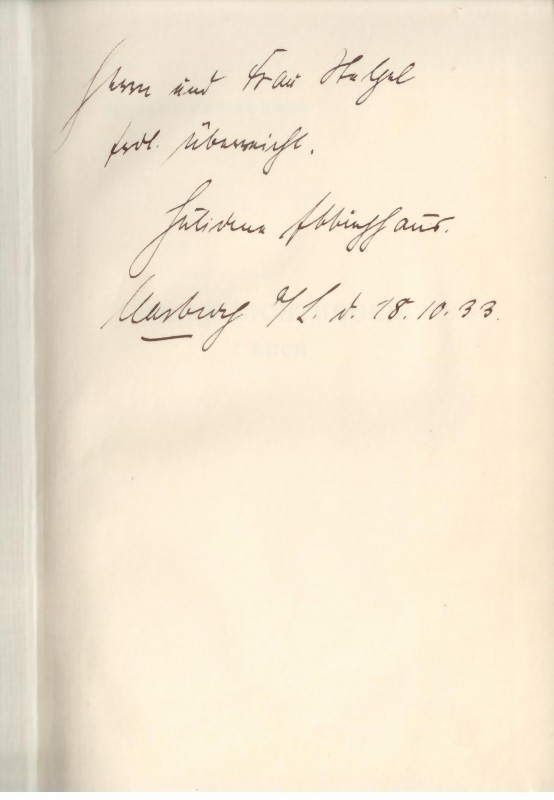 Herrn und Frau Stelzel
frdl. überreicht.
Ebbinghaus.
Marburg a/L. d. 18.10.33.
BUCH